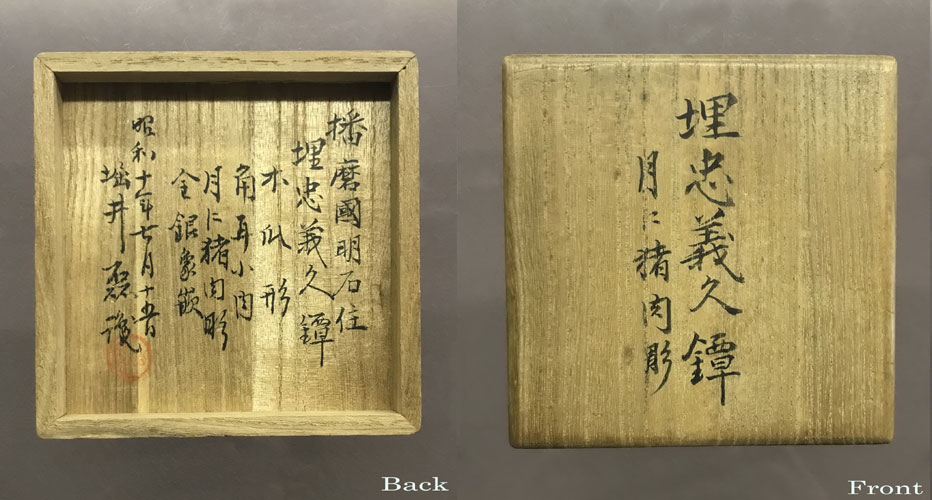 播磨國明石住
埋忠義久鐔
木瓜形
角耳小肉
月に猪肉彫
金銀象嵌
昭和十一年七月十五日
堀井
Back
埋忠義久鐔
月ニ猪肉彫
Front